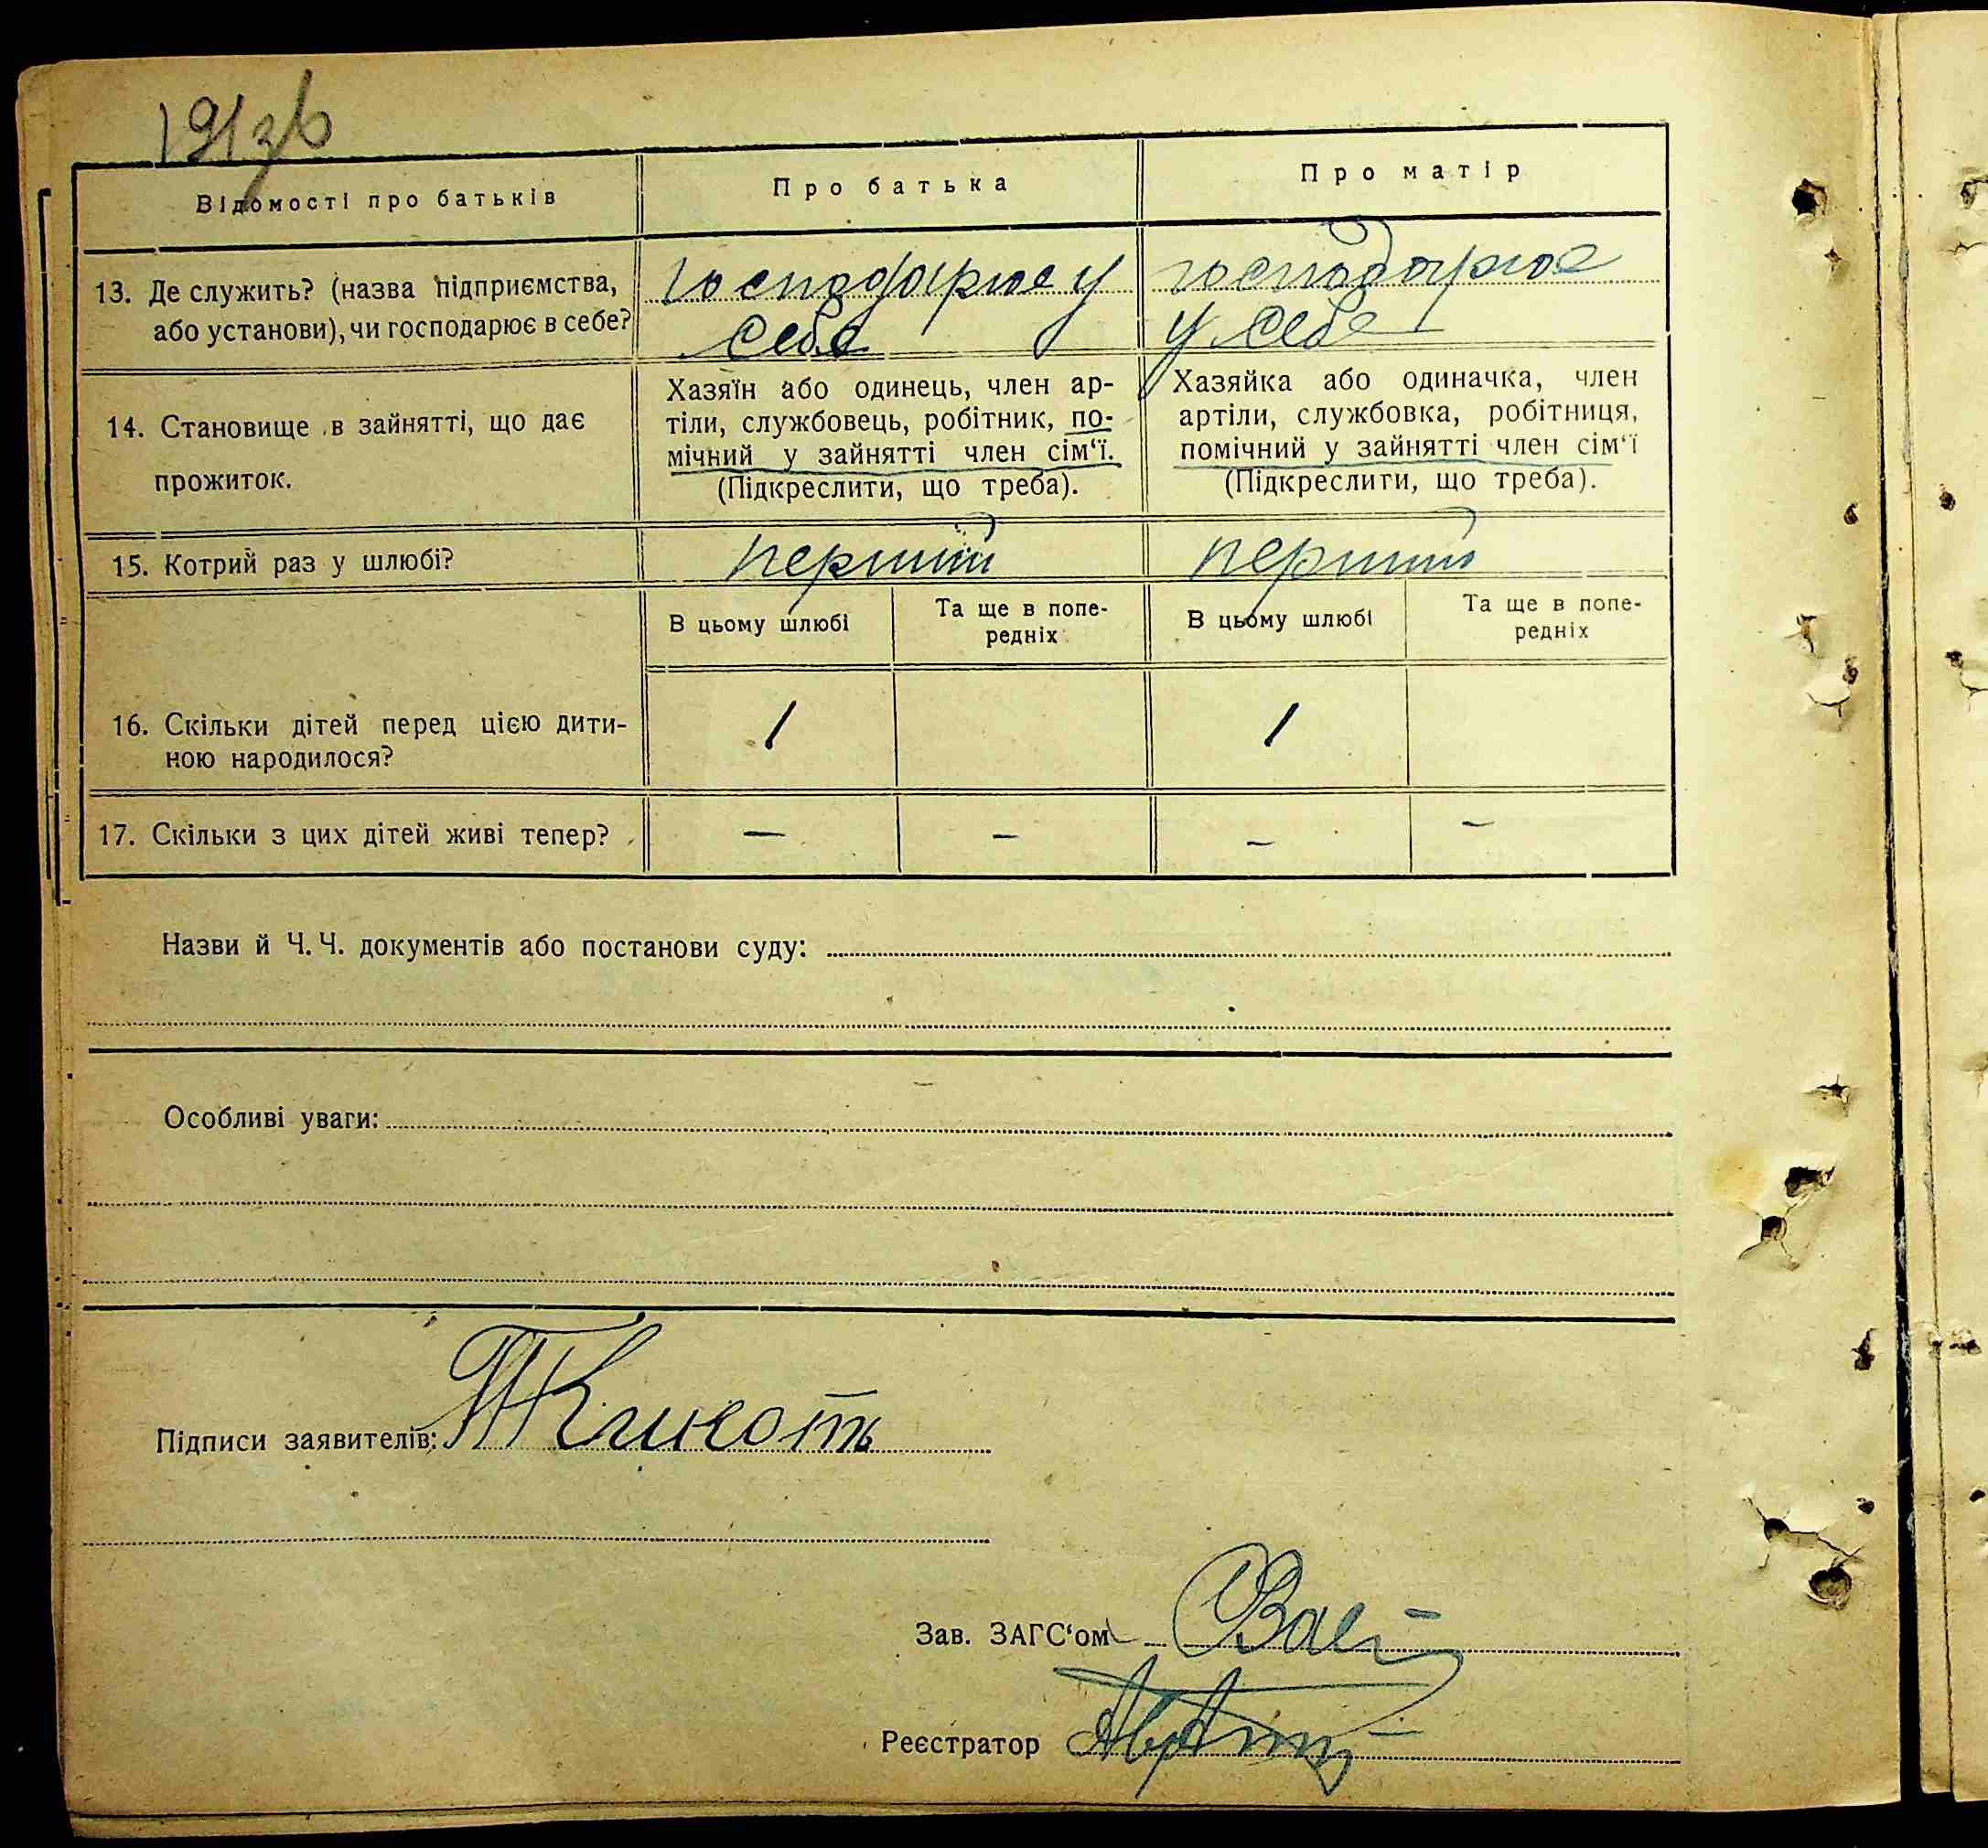 191 зв
Відомості про батьків
Про батька
Про матір
13. Де служить? (назва підприємства,
або установи), чи господарює в себе?
господарює у
себе
господарює
у себе
14. Становище в зайнятті, що дає
прожиток.
Хазяїн або одинець, член ар-
тіли, службовець, робітник, по-
мічний у зайнятті член сім‘ї.
(Підкреслити, що треба).
Хазяйка або одиначка, член
артіли, службовка, робітниця,
помічний у зайнятті член сім‘ї
(Підкреслити, що треба).
15. Котрий раз у шлюбі?
перший
перший
В цьому шлюбі
Та ще в попе-
редніх
В цьому шлюбі
Та ще в попе-
редніх
16. Скільки дітей перед цією дити-
ною народилося?
1
1
17. Скільки з цих дітей живі тепер?
—
—
—
—
Назви й Ч. Ч. документів або постанови суду:
Особливі уваги:
Підписи заявителів:
Зав. ЗАГС‘ом
Реєстратор